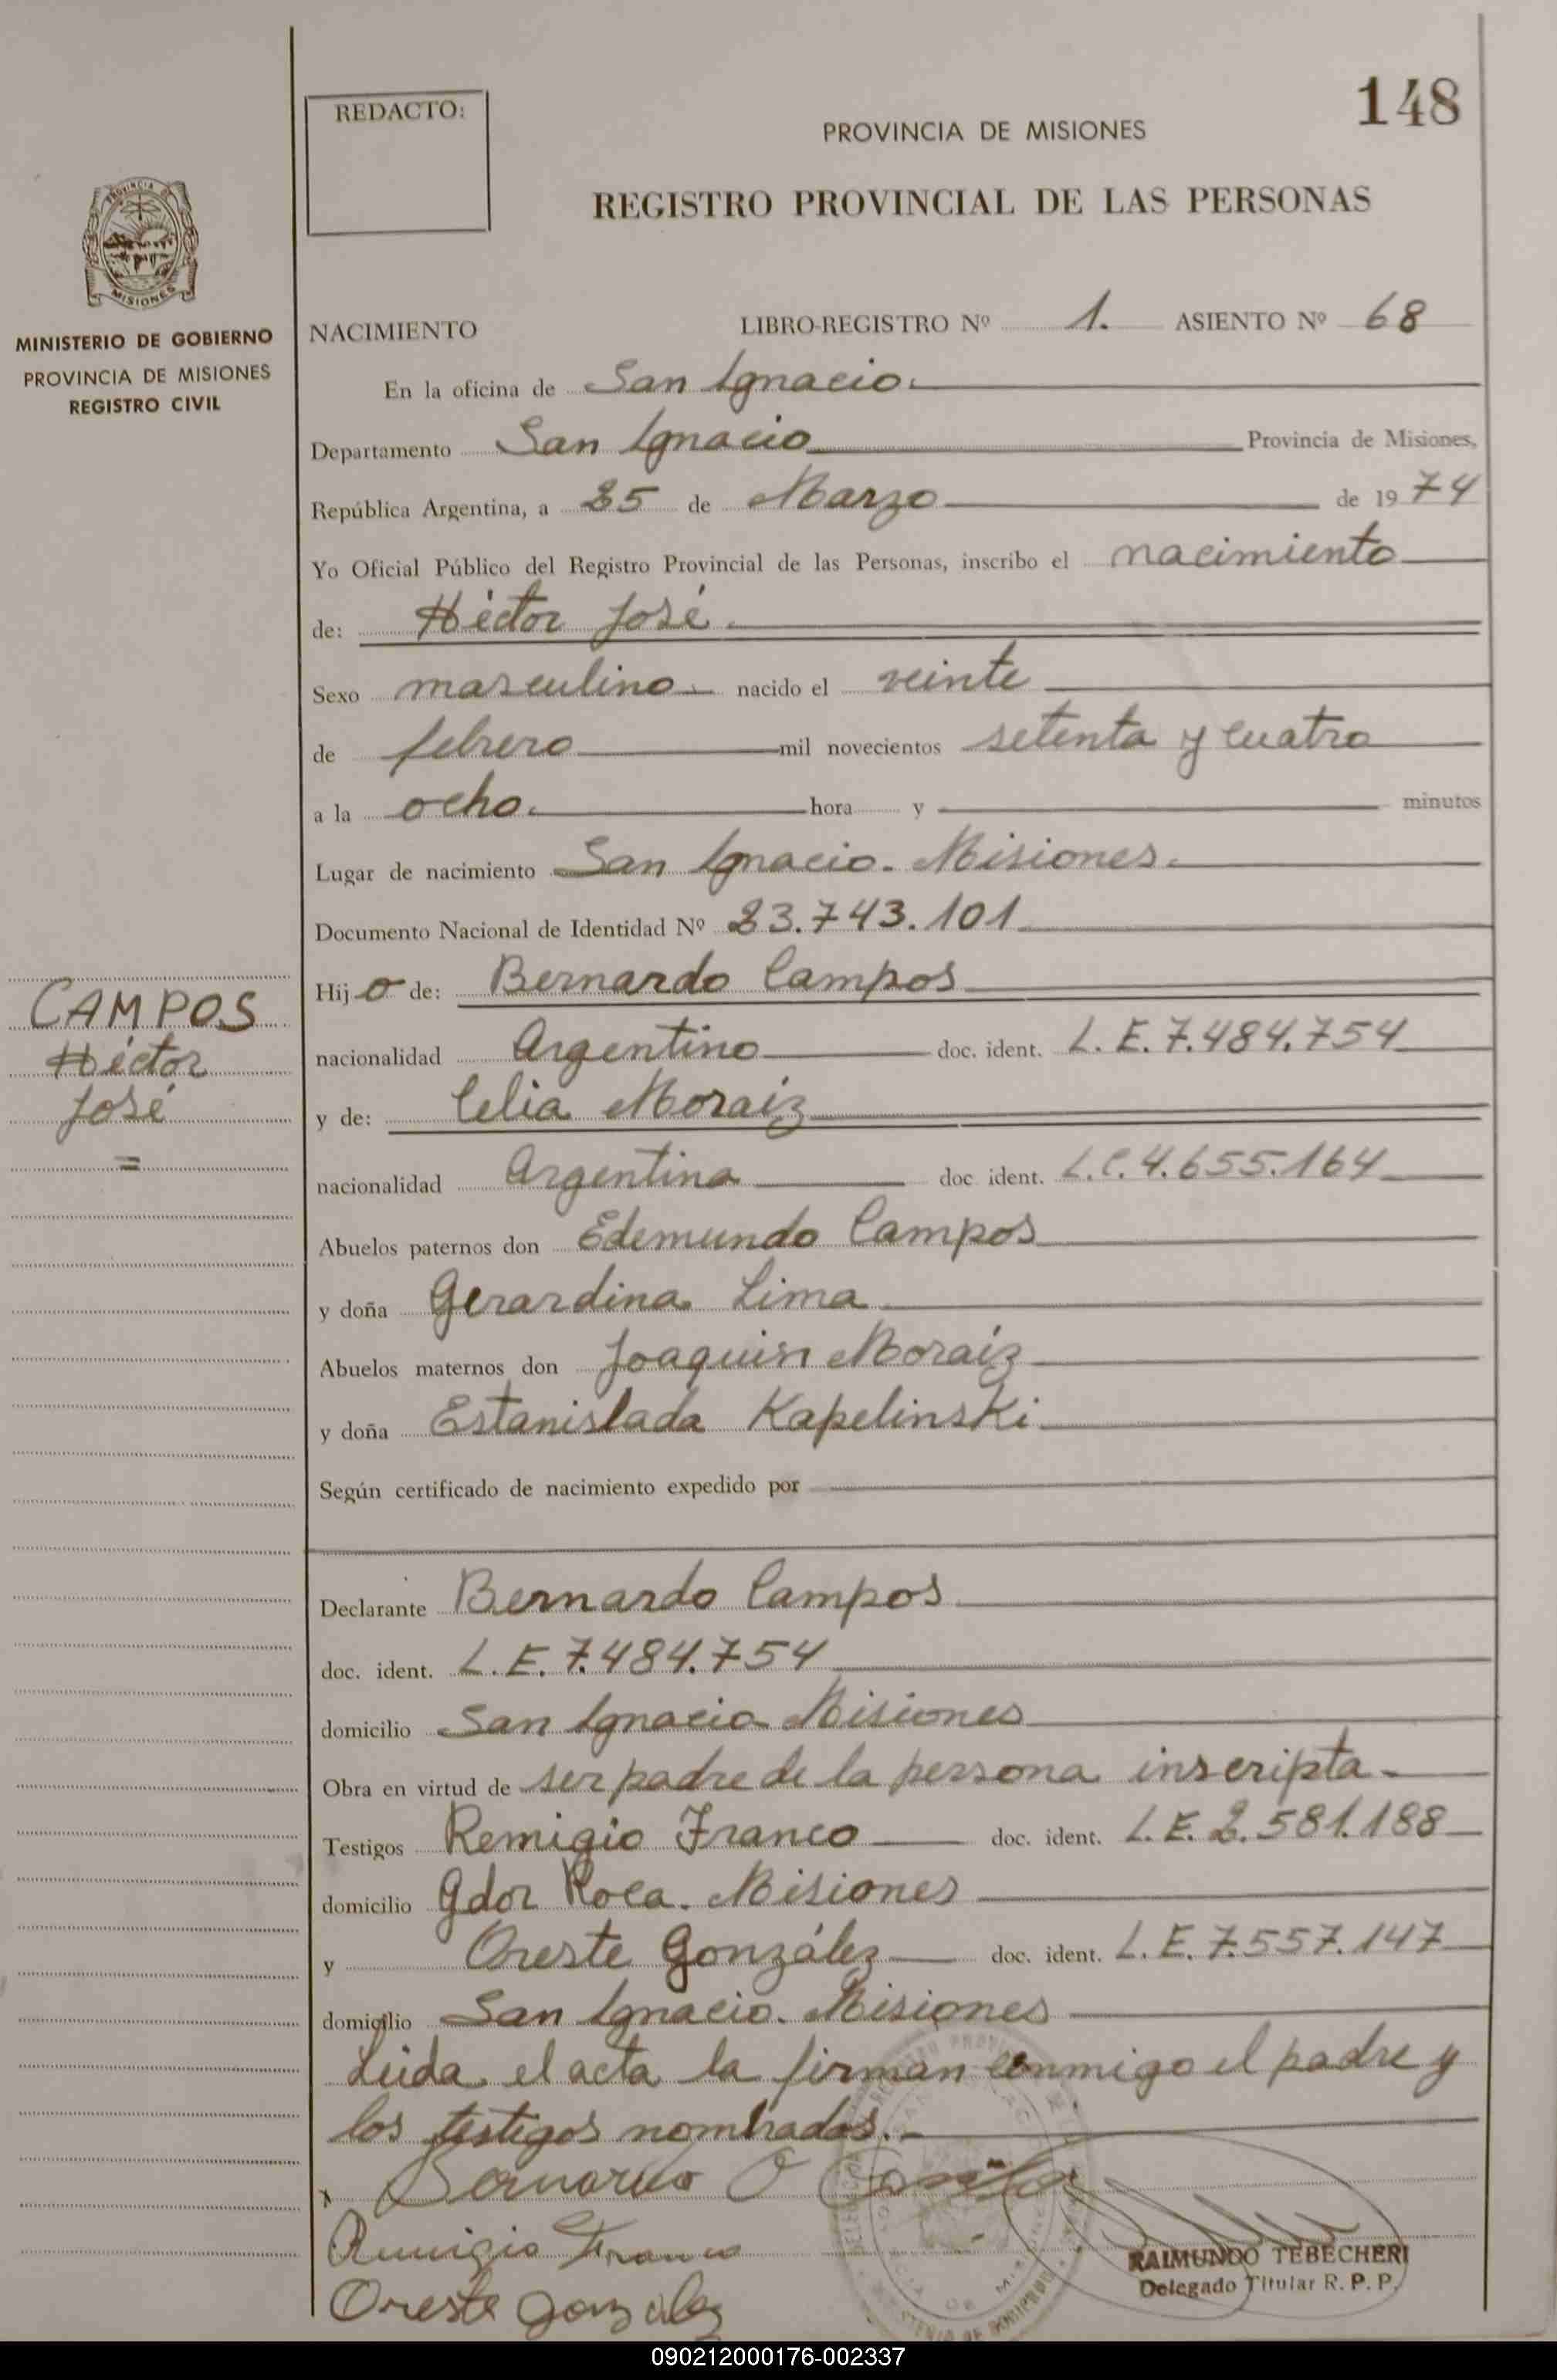 148
REDACTO:
PROVINCIA DE MISIONES
REGISTRO PROVINCIAL DE LAS PERSONAS
PROVINCIA DE
MISIONES
MINISTERIO DE GOBIERNO
PROVINCIA DE MISIONES
REGISTRO CIVIL
NACIMIENTO LIBRO-REGISTRO Nº 1. ASIENTO Nº 68
En la oficina de San Ignacio.
Departamento San Ignacio Provincia de Misiones,
República Argentina, a 25 de Marzo de 1974
Yo Oficial Público del Registro Provincial de las Personas, inscribo el nacimiento
de: Héctor José.
Sexo masculino nacido el veinte
de febrero mil novecientos setenta y cuatro
a la ocho. hora y minutos
Lugar de nacimiento San Ignacio. Misiones.
Documento Nacional de Identidad Nº 23.743.101
Hijo de: Bernardo Campos
CAMPOS
Héctor
José
=
nacionalidad Argentino doc. ident. L. E. 7.484.754
y de: Celia Moraiz
nacionalidad Argentina doc ident. L.C. 4.655.164
Abuelos paternos don Edemundo Campos
y doña Gerardina Lima
Abuelos maternos don Joaquin Moraiz
y doña Estanislada Kapelinski
Según certificado de nacimiento expedido por
Declarante Bernardo Campos
doc. ident. L. E. 7.484.754
domicilio San Ignacio Misiones
Obra en virtud de ser padre de la persona inscripta.
Testigos Remigio Franco doc. ident. L. E. 2.581.188
domicilio Gdor Roca. Misiones
y Oreste González doc. ident. L. E. 7.557.147
domicilio San Ignacio. Misiones
Leida el acta la firman conmigo el padre y
los testigos nombrados.
Bernardo
Remigio Franco
Oreste Gonzalez
RAIMUNDO TEBECHERI
Delegado Titular R. P. P.
090212000176-002337